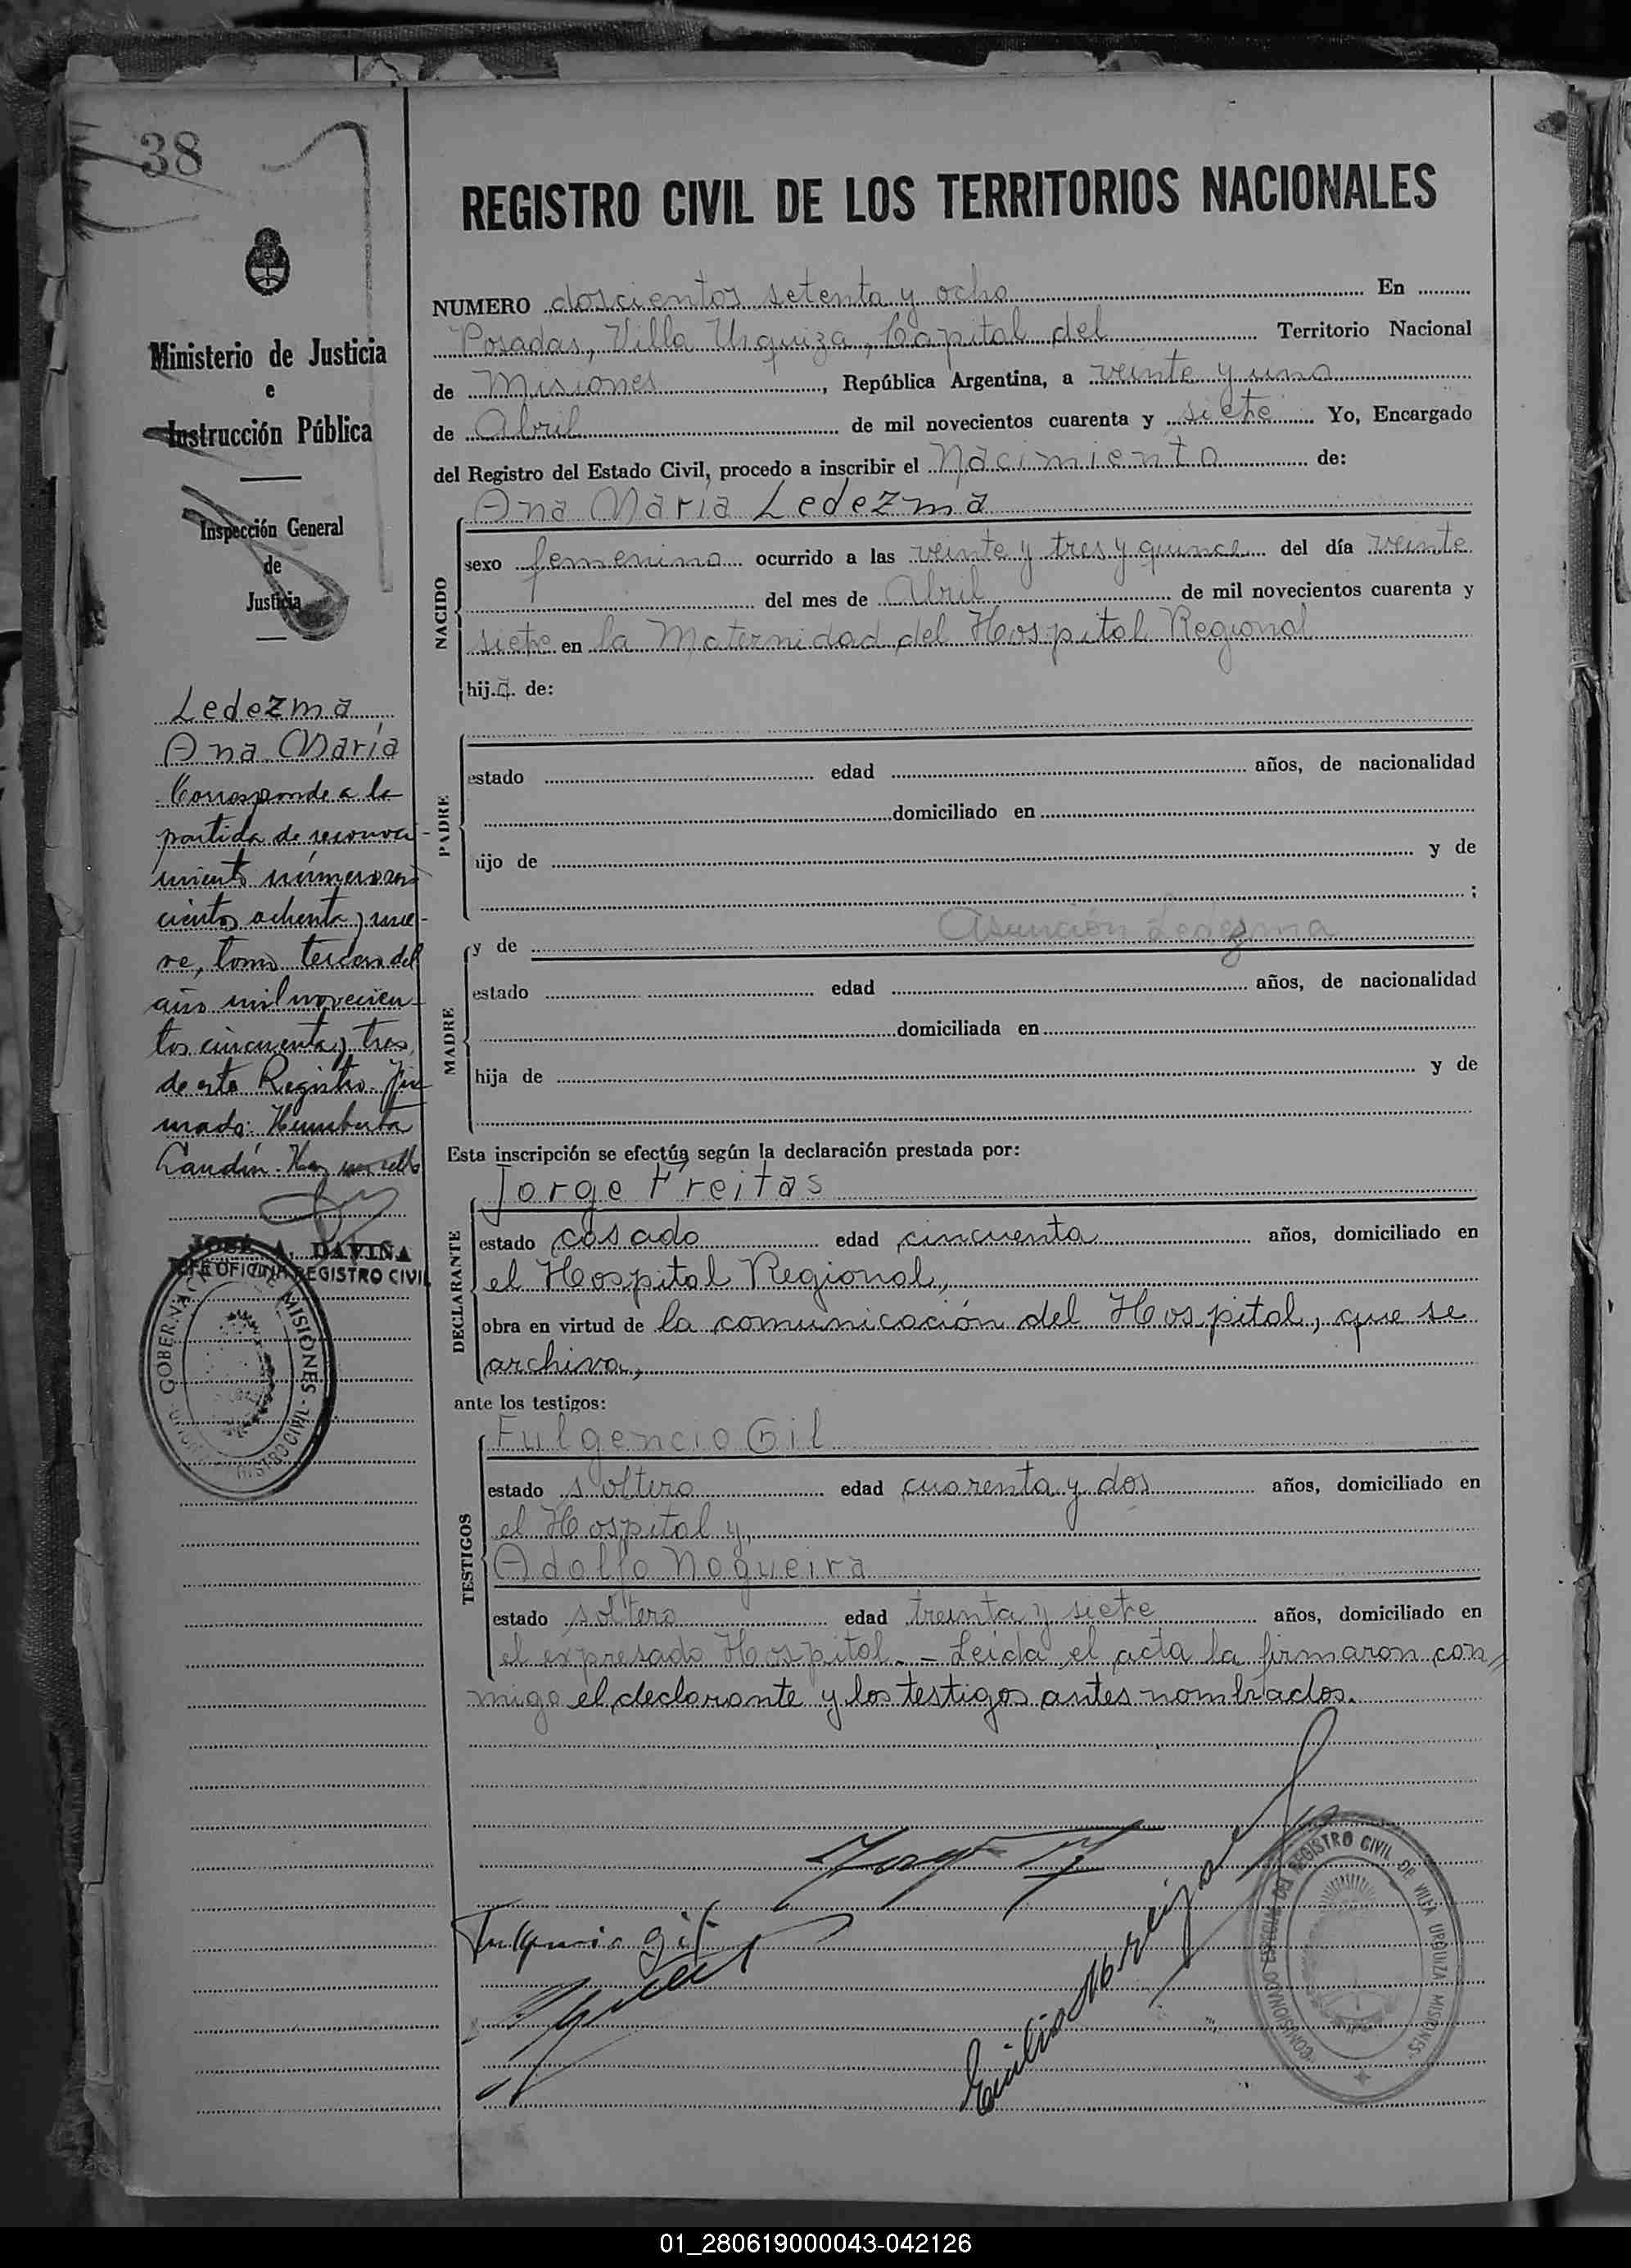 38
REGISTRO CIVIL DE LOS TERRITORIOS NACIONALES
Ministerio de Justicia
e
Instrucción Pública
Inspección General
de
Justicia
Ledezma
Ana María
Corresponde a la
partida de reconoci-
miento número seis
cientos ochenta y nue-
ve, tomo tercero del
año mil novecien-
tos cincuenta y tres,
de este Registro. Fir
mado: Humberto
Gandín. Hay un sello
JOSÉ A. DAVIÑA
JEFE OFICINA REGISTRO CIVIL
GOBERNACIÓN DE MISIONES - REGISTRO CIVIL
NUMERO doscientos setenta y ocho En
Posadas, Villa Urquiza, Capital del Territorio Nacional
de Misiones, República Argentina, a veinte y uno
de Abril de mil novecientos cuarenta y siete Yo, Encargado
del Registro del Estado Civil, procedo a inscribir el Nacimiento de:
NACIDO
Ana María Ledezma
sexo femenino ocurrido a las veinte y tres y quince del día veinte
del mes de Abril de mil novecientos cuarenta y
siete en la Maternidad del Hospital Regional
hija de:
PADRE
estado edad años, de nacionalidad
domiciliado en
hijo de y de
;
MADRE
y de Asunción Ledezma
estado edad años, de nacionalidad
domiciliada en
hija de y de
Esta inscripción se efectúa según la declaración prestada por:
DECLARANTE
Jorge Freitas
estado casado edad cincuenta años, domiciliado en
el Hospital Regional,
obra en virtud de la comunicación del Hospital, que se
archiva,
ante los testigos:
TESTIGOS
Fulgencio Gil
estado soltero edad cuarenta y dos años, domiciliado en
el Hospital y,
Adolfo Nogueira
estado soltero edad treinta y siete años, domiciliado en
el expresado Hospital. - Leída el acta la firmaron con
migo el declarante y los testigos antes nombrados.
Jorge F
Fulgencio Gil
REGISTRO CIVIL DE VILLA URQUIZA MISIONES
01_280619000043-042126